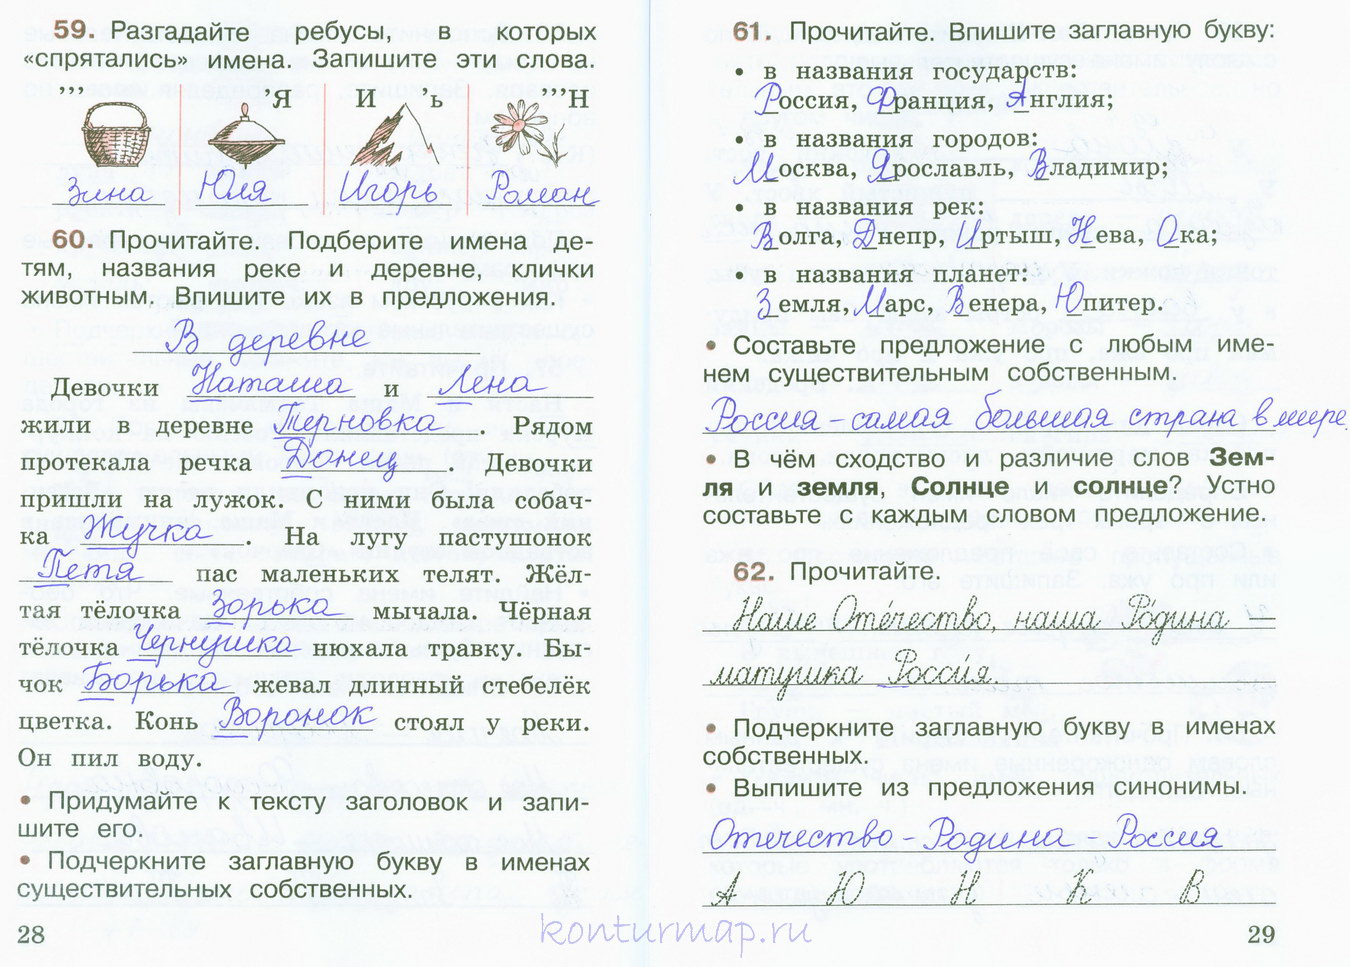 59. Разгадайте ребусы, в которых
«спрятались» имена. Запишите эти слова.
’’’ ’Я И ь ’’’Н
Зина Юля Игорь Роман
60. Прочитайте. Подберите имена де-
тям, названия реке и деревне, клички
животным. Впишите их в предложения.
В деревне
Девочки Наташа и Лена
жили в деревне Терновка. Рядом
протекала речка Донец. Девочки
пришли на лужок. С ними была собач-
ка Жучка. На лугу пастушонок
Петя пас маленьких телят. Жёл-
тая тёлочка Зорька мычала. Чёрная
тёлочка Чернушка нюхала травку. Бы-
чок Борька жевал длинный стебелёк
цветка. Конь Воронок стоял у реки.
Он пил воду.
• Придумайте к тексту заголовок и запи-
шите его.
• Подчеркните заглавную букву в именах
существительных собственных.
28
61. Прочитайте. Впишите заглавную букву:
• в названия государств:
Россия, Франция, Англия;
• в названия городов:
Москва, Ярославль, Владимир;
• в названия рек:
Волга, Днепр, Иртыш, Нева, Ока;
• в названия планет:
Земля, Марс, Венера, Юпитер.
• Составьте предложение с любым име-
нем существительным собственным.
Россия - самая большая страна в мире.
• В чём сходство и различие слов Зем-
ля и земля, Солнце и солнце? Устно
составьте с каждым словом предложение.
62. Прочитайте.
Наше Оте́чество, наша Ро́дина
матушка Россия.
• Подчеркните заглавную букву в именах
собственных.
• Выпишите из предложения синонимы.
Отечество - Родина - Россия
А Ю Н К В
29
konturmap.ru